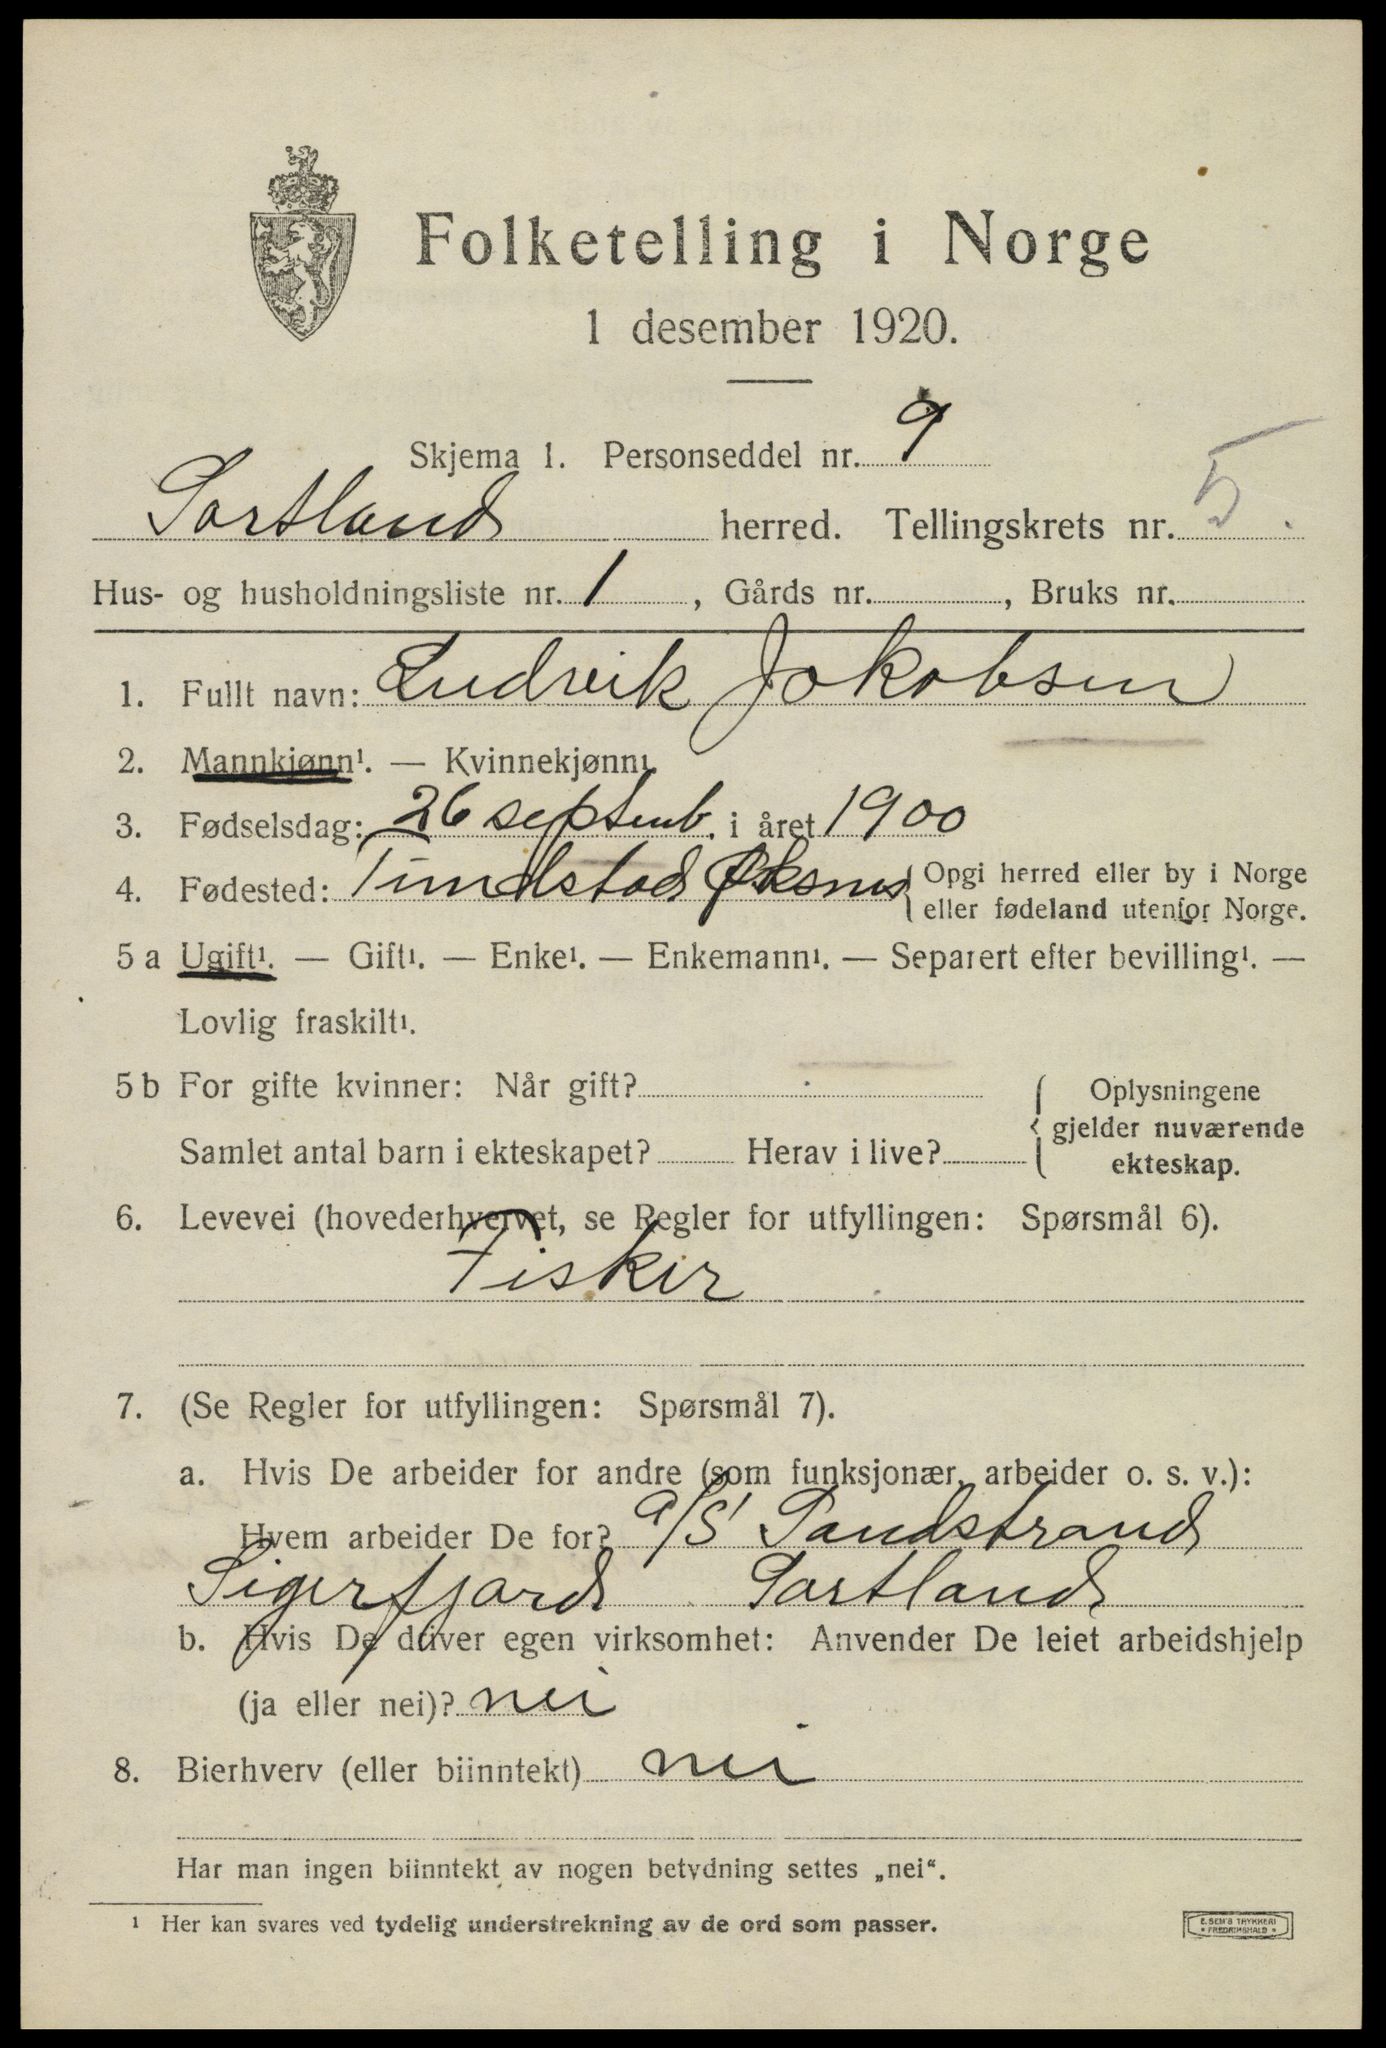 Folketelling i Norge
1 desember 1920.
Skjema 1. Personseddel nr. 9
Sortland herred. Tellingskrets nr. 5.
Hus- og husholdningsliste nr. 1, Gårds nr. , Bruks nr.
1. Fullt navn: Ludvik Jakobsen
2. Mannkjønn¹. — Kvinnekjønn¹.
3. Fødselsdag: 26 septemb. i året 1900
4. Fødested: Tundstad Øksnes { Opgi herred eller by i Norge
eller fødeland utenfor Norge.
5 a Ugift¹. — Gift¹. — Enke¹. — Enkemann¹. — Separert efter bevilling¹. —
Lovlig fraskilt¹.
5 b For gifte kvinner: Når gift? { Oplysningene
gjelder nuværende
Samlet antal barn i ekteskapet? Herav i live?
ekteskap.
6. Levevei (hovederhvervet, se Regler for utfyllingen: Spørsmål 6).
Fisker
7. (Se Regler for utfyllingen: Spørsmål 7).
a. Hvis De arbeider for andre (som funksjonær, arbeider o. s. v.):
Hvem arbeider De for? a/S Sandstrand
Sigerfjord Sortland
b. Hvis De driver egen virksomhet: Anvender De leiet arbeidshjelp
(ja eller nei)? nei
8. Bierhverv (eller biinntekt) nei
Har man ingen biinntekt av nogen betydning settes „nei“.
¹ Her kan svares ved tydelig understrekning av de ord som passer.
E. SEM'S TRYKKERI
* FREDRIKSHALD *